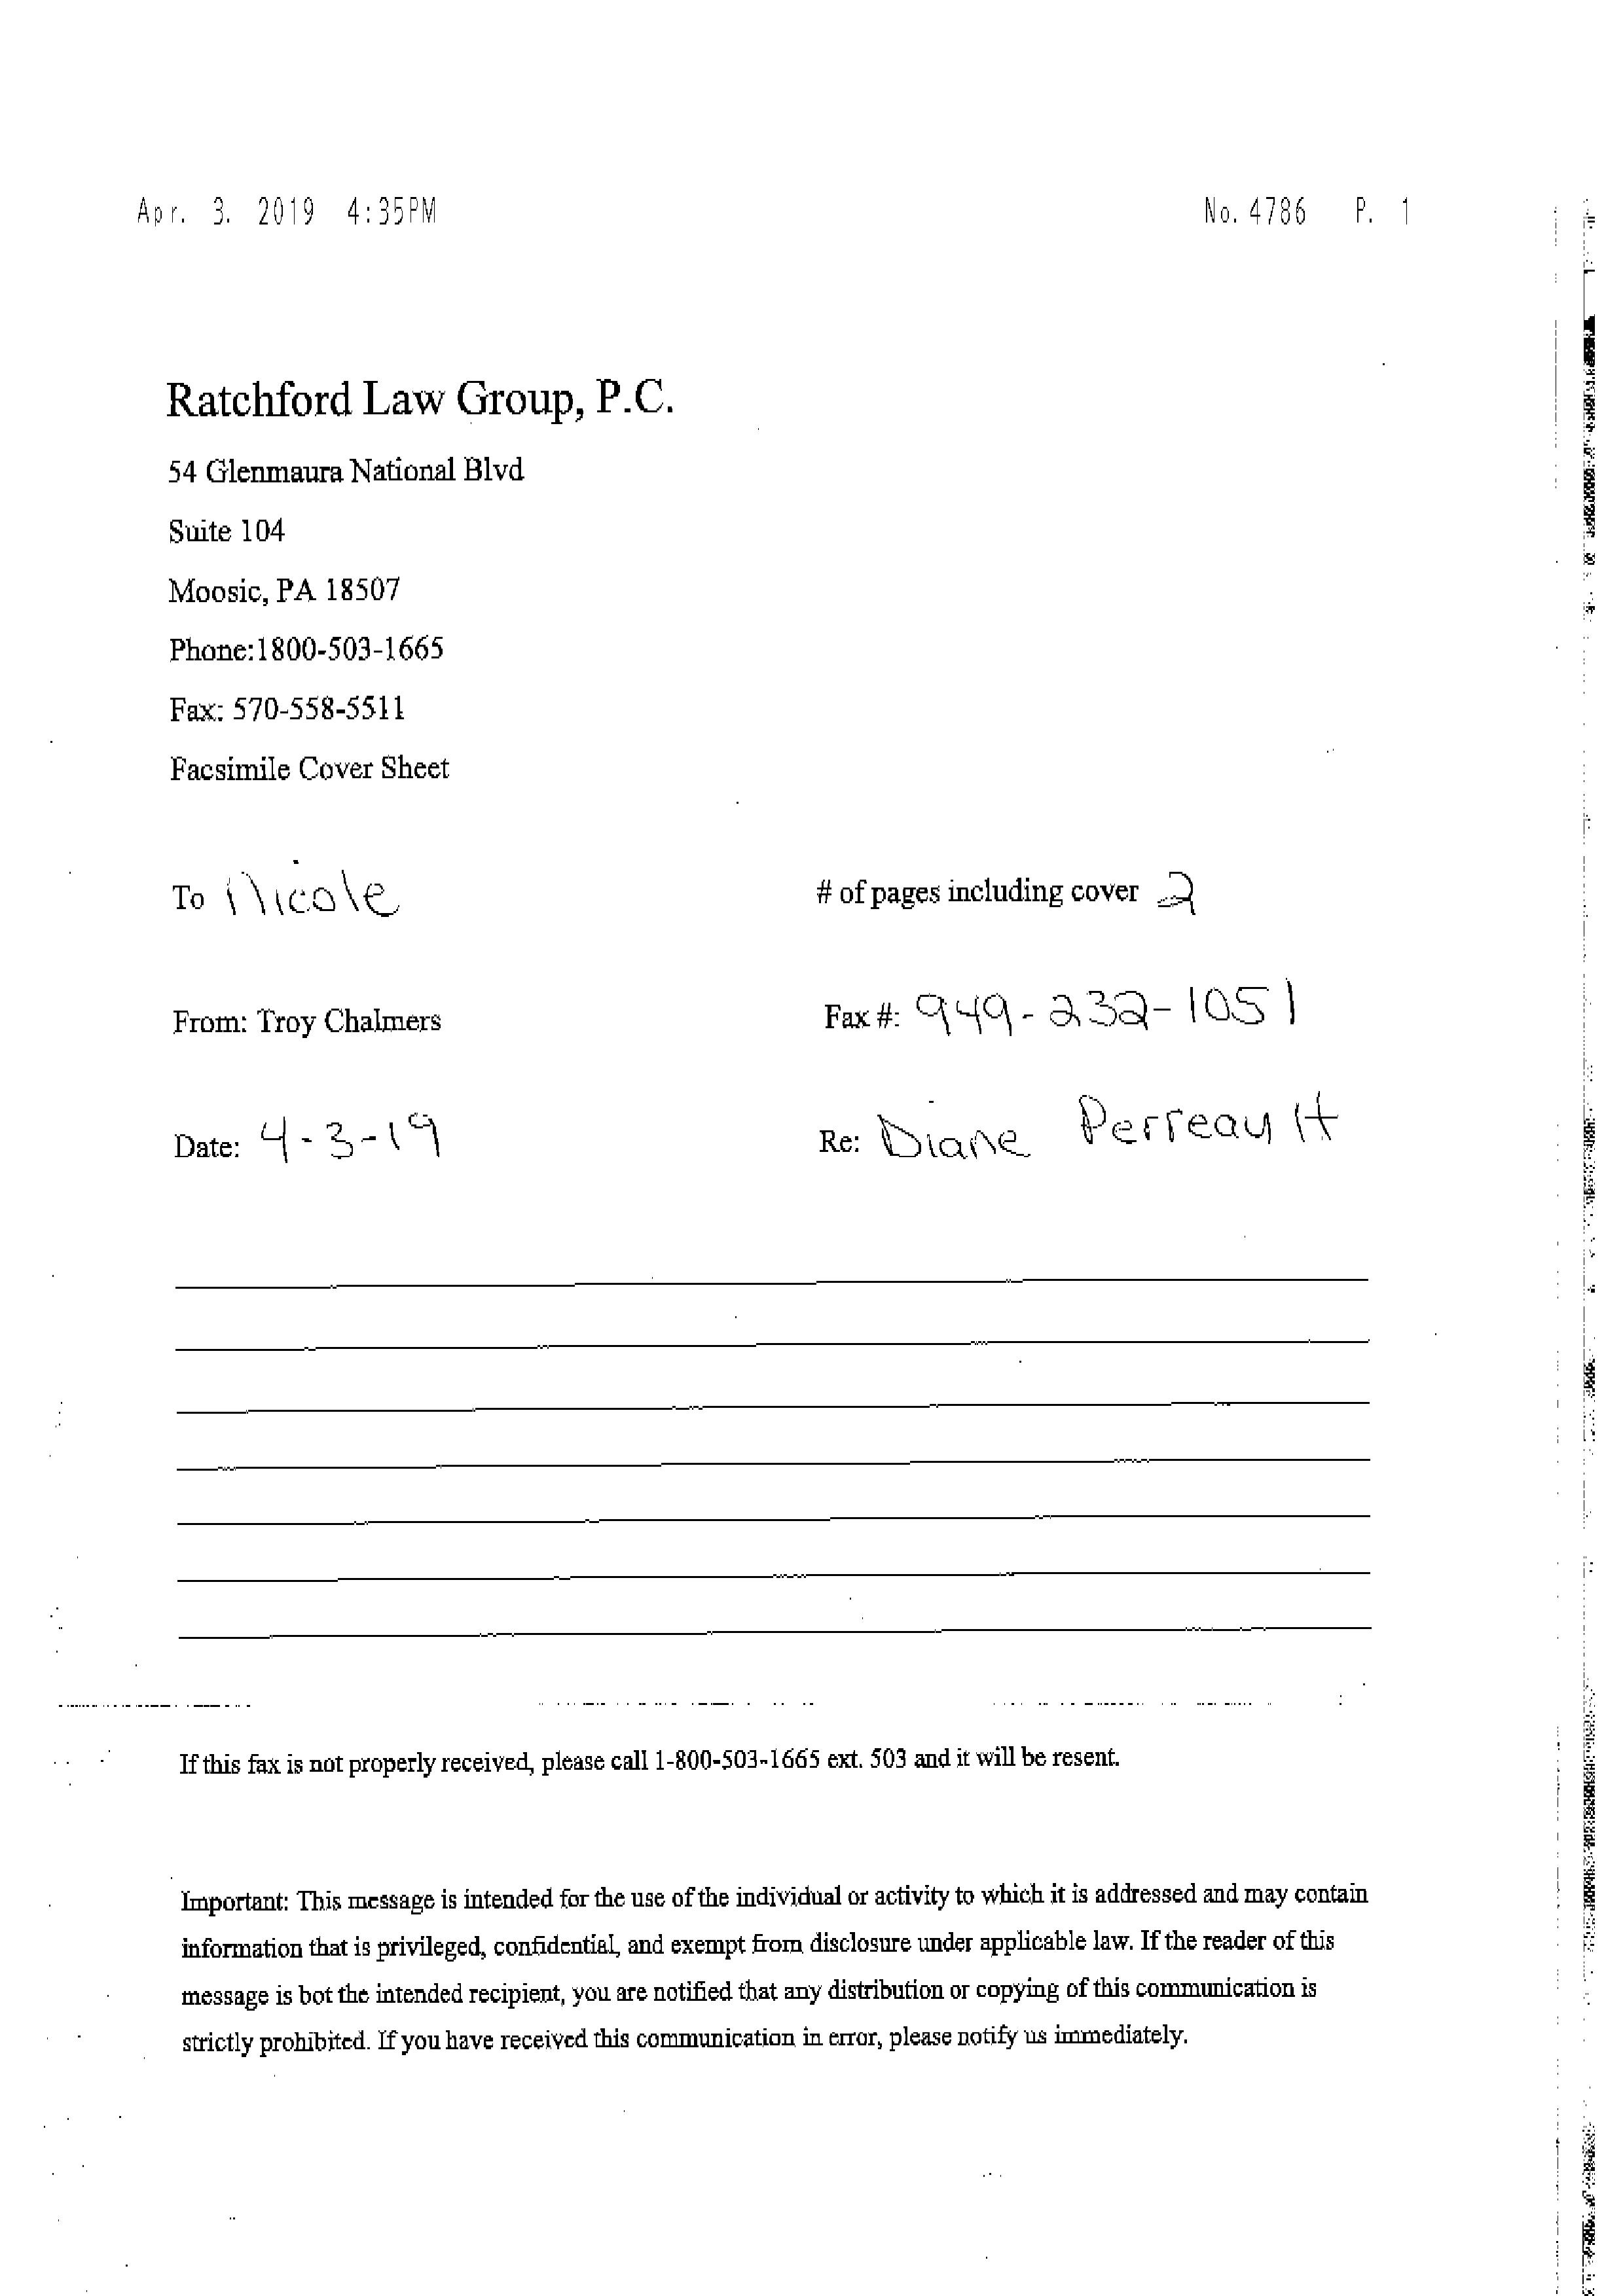 Apr. 3. 2019 4:35PM No. 4786 P. 1
Ratchford Law Group, P.C.
54 Glenmaura National Blvd
Suite 104
Moosic, PA 18507
Phone:1800-503-1665
Fax: 570-558-5511
Facsimile Cover Sheet
To Nicole # of pages including cover 2
From: Troy Chalmers Fax #: 949-232-1051
Date: 4-3-19 Re: Diane Perreault
If this fax is not properly received, please call 1-800-503-1665 ext. 503 and it will be resent.
Important: This message is intended for the use of the individual or activity to which it is addressed and may contain
information that is privileged, confidential, and exempt from disclosure under applicable law. If the reader of this
message is bot the intended recipient, you are notified that any distribution or copying of this communication is
strictly prohibited. If you have received this communication in error, please notify us immediately.